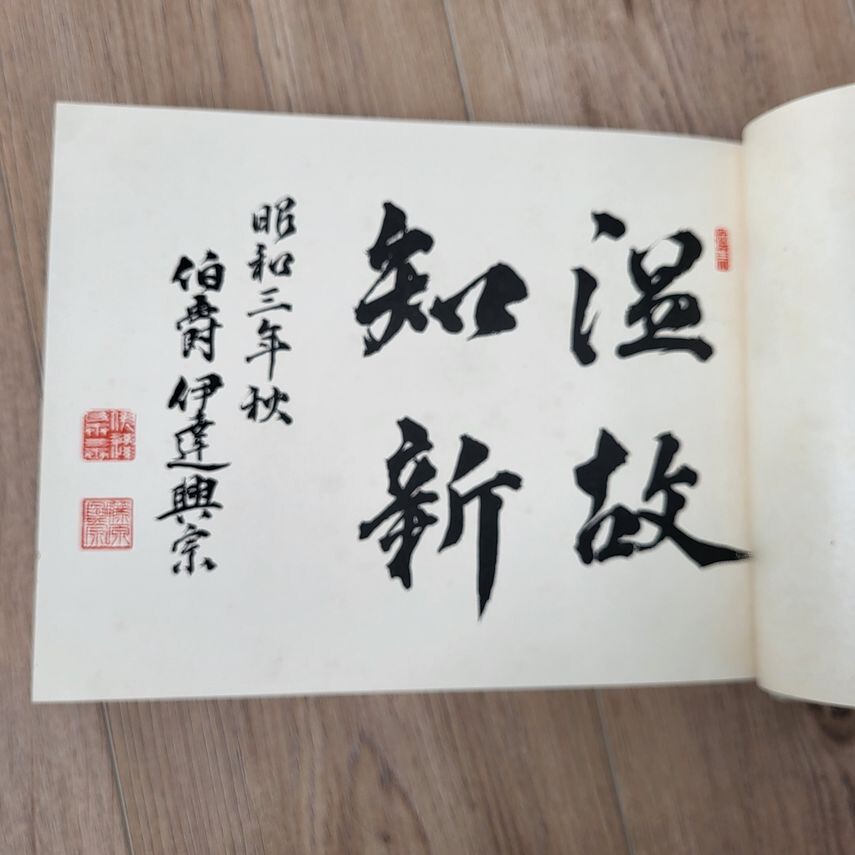 温故
知新
昭和三年秋
伯爵伊達興宗